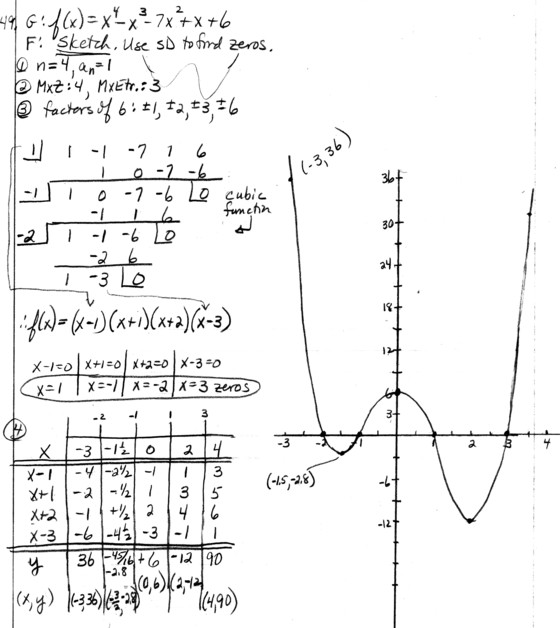 49. G: f(x) = x⁴ - x³ - 7x² + x + 6
F: Sketch. Use SD to find zeros.
① n=4, aₙ=1
② MxZ: 4, MxExtr.: 3
③ factors of 6: ±1, ±2, ±3, ±6
1 | 1 -1 -7 1 6
1 0 -7 -6
-1 | 1 0 -7 -6 | 0 cubic function
-1 1 6
-2 | 1 -1 -6 | 0
-2 6
1 -3 | 0
∴ f(x) = (x-1)(x+1)(x+2)(x-3)
x-1=0 | x+1=0 | x+2=0 | x-3=0
x=1 | x=-1 | x=-2 | x=3 zeros
④
-2 -1 1 3
x | -3 | -1½ | 0 | 2 | 4
x-1 | -4 | -2½ | -1 | 1 | 3
x+1 | -2 | -½ | 1 | 3 | 5
x+2 | -1 | +½ | 2 | 4 | 6
x-3 | -6 | -4½ | -3 | -1 | 1
y | 36 | -45/16 -2.8 | +6 | -12 | 90
(x,y) | (-3,36) | (-3/2, -2.8) | (0,6) | (2,-12) | (4,90)
(-3,36)
36
30
24
18
12
6
3
-3 -2 -1 1 2 3 4
(-1.5,-2.8)
-6
-12